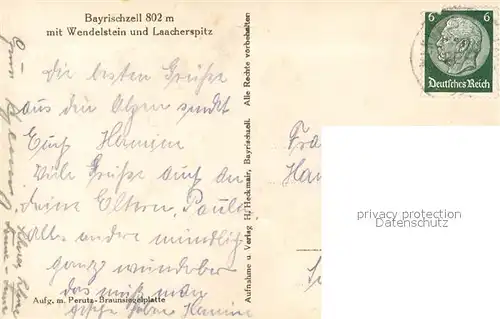 Bayrischzell 802 m
mit Wendelstein und Laacherspitz
die besten Grüße
aus den Alpen sendet
Euch Hermine
Viele Grüße auch an
deine Eltern, Paula
Alles andere mündlich
ganz wunderbar
das muß man
gesehn haben Hermine
Aufg. m. Perutz-Braunsiegelplatte
Aufnahme u. Verlag H. Heckmair, Bayrischzell. Alle Rechte vorbehalten
6 6
Deutsches Reich
Fra
privacy protection
watermark